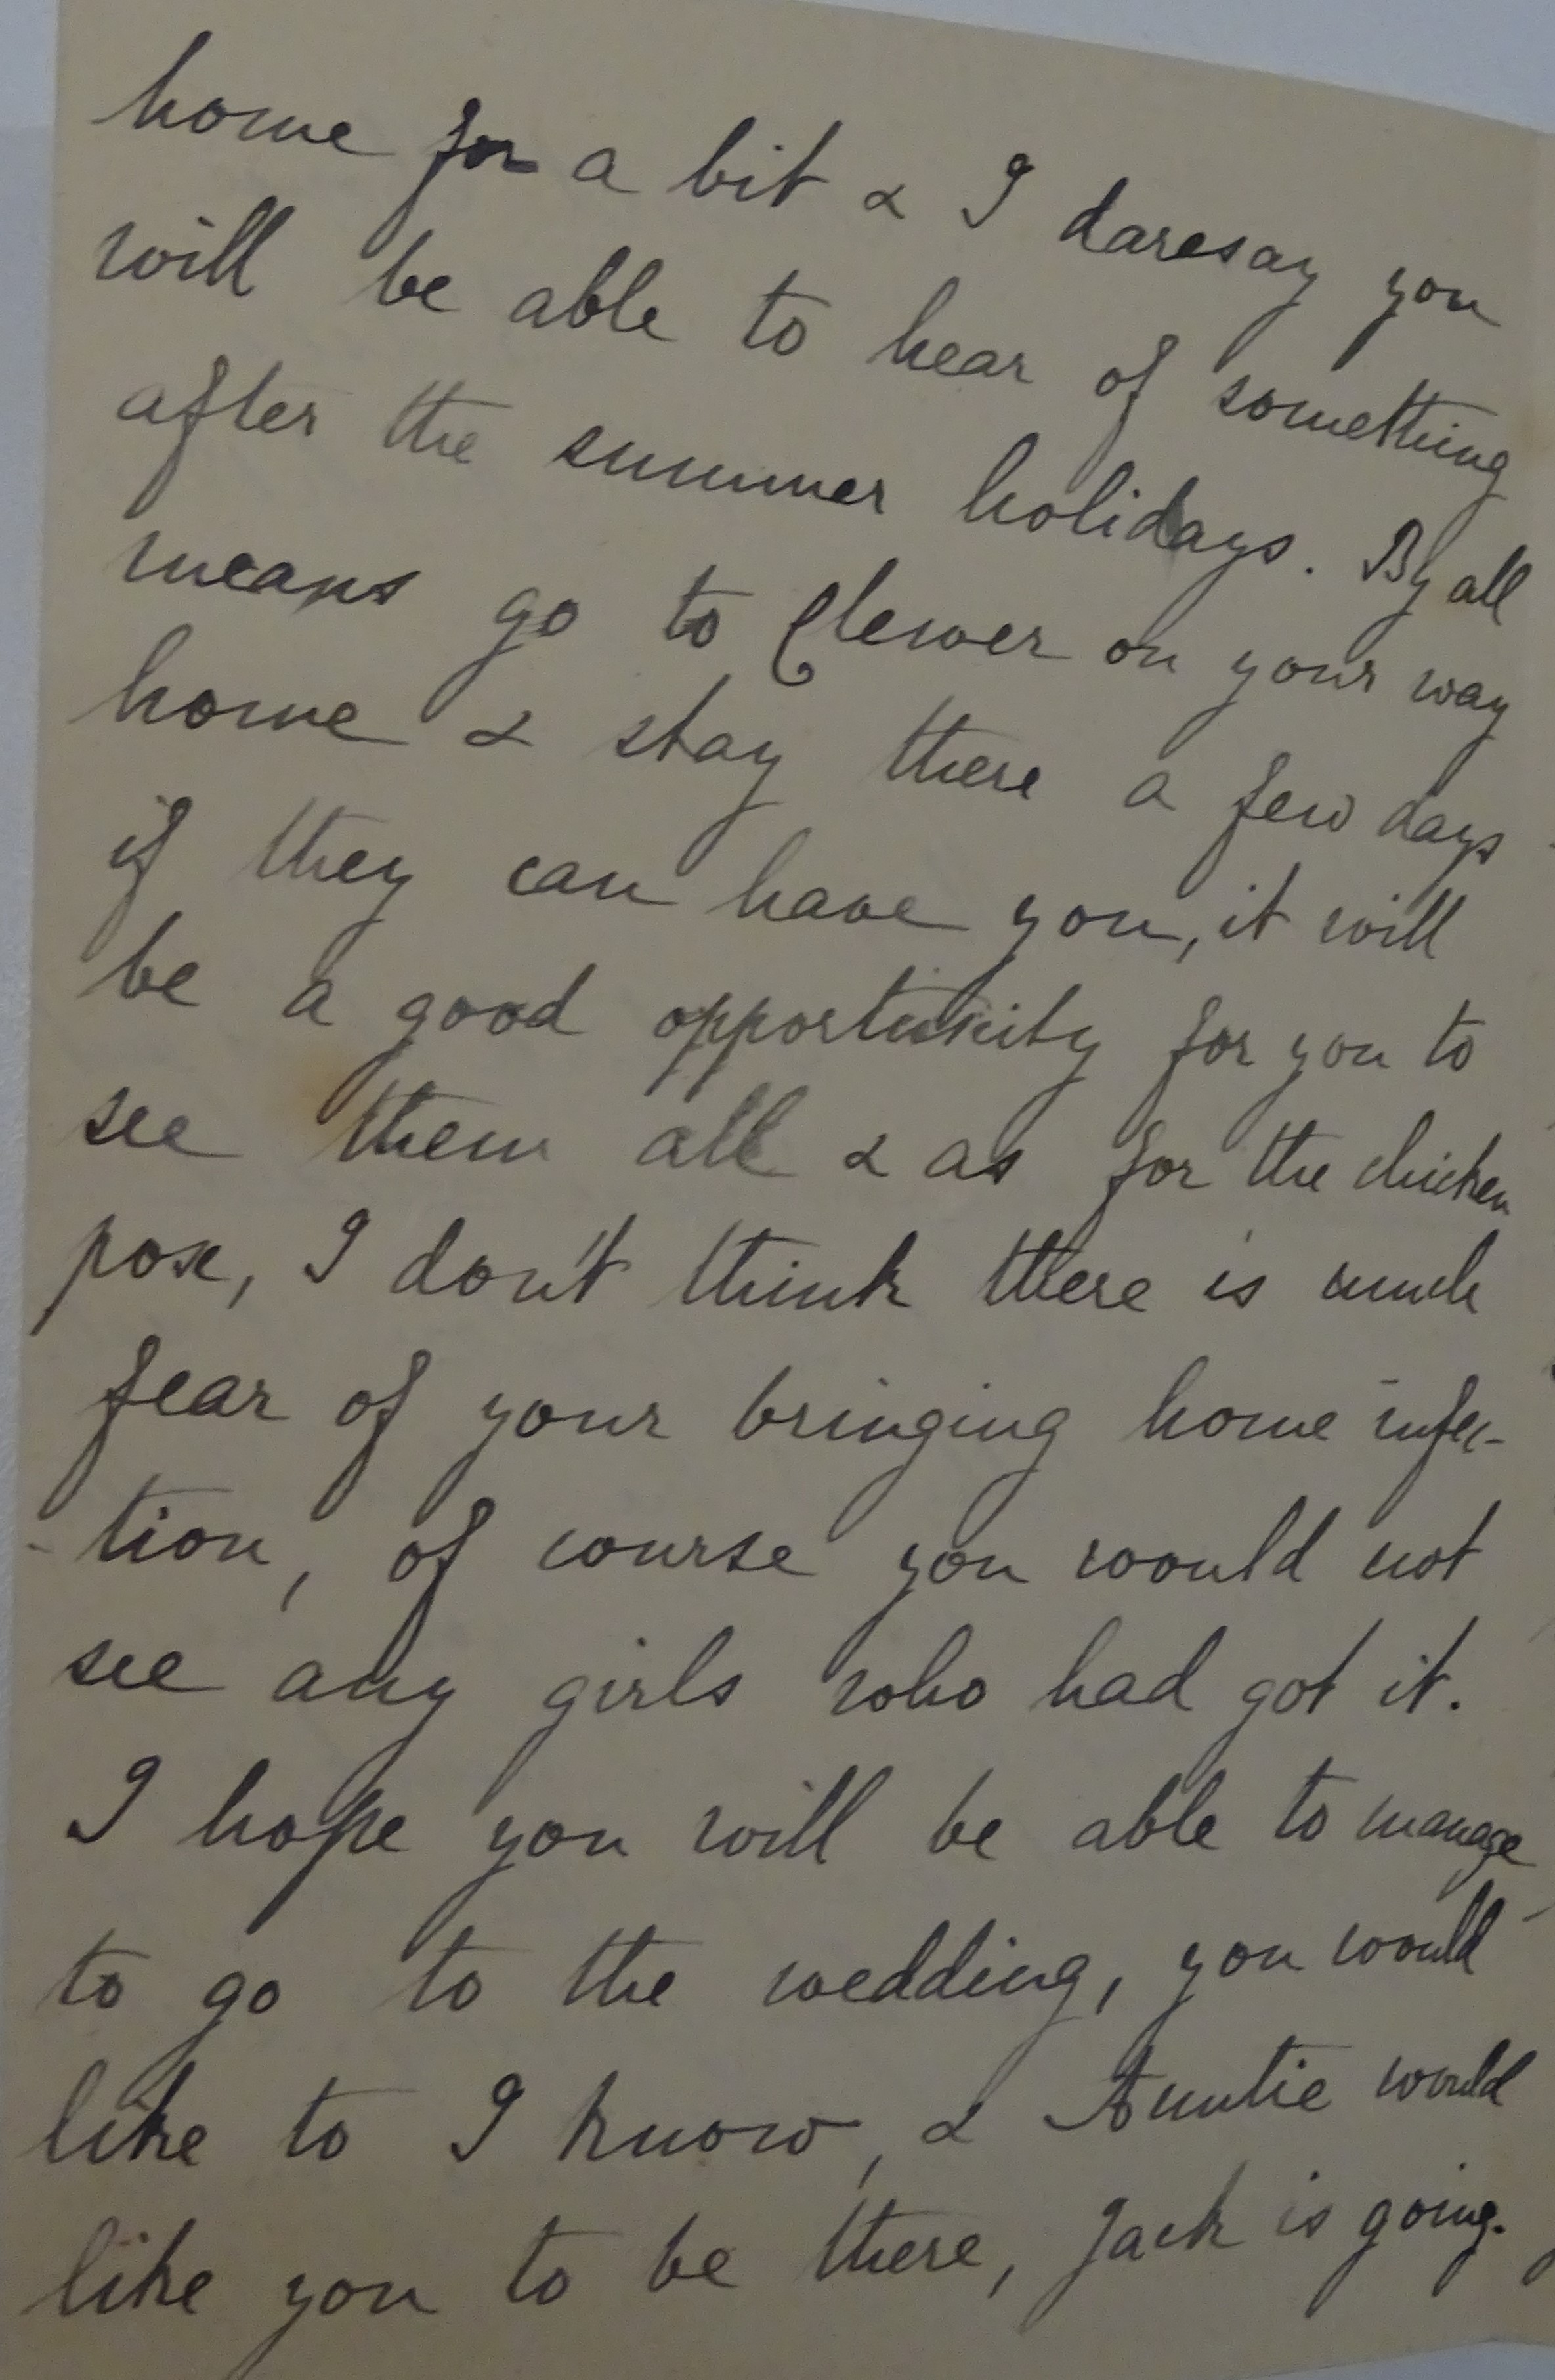 home for a bit & I daresay you
will be able to hear of something
after the summer holidays. By all
means go to Clewer on your way
home & stay there a few days
if they can have you, it will
be a good opportunity for you to
see them all & as for the chicken
pox, I don't think there is much
fear of your bringing home infec-
-tion, of course you would not
see any girls who had got it.
I hope you will be able to manage
to go to the wedding, you would
like to I know, & Auntie would
like you to be there, Jack is going.